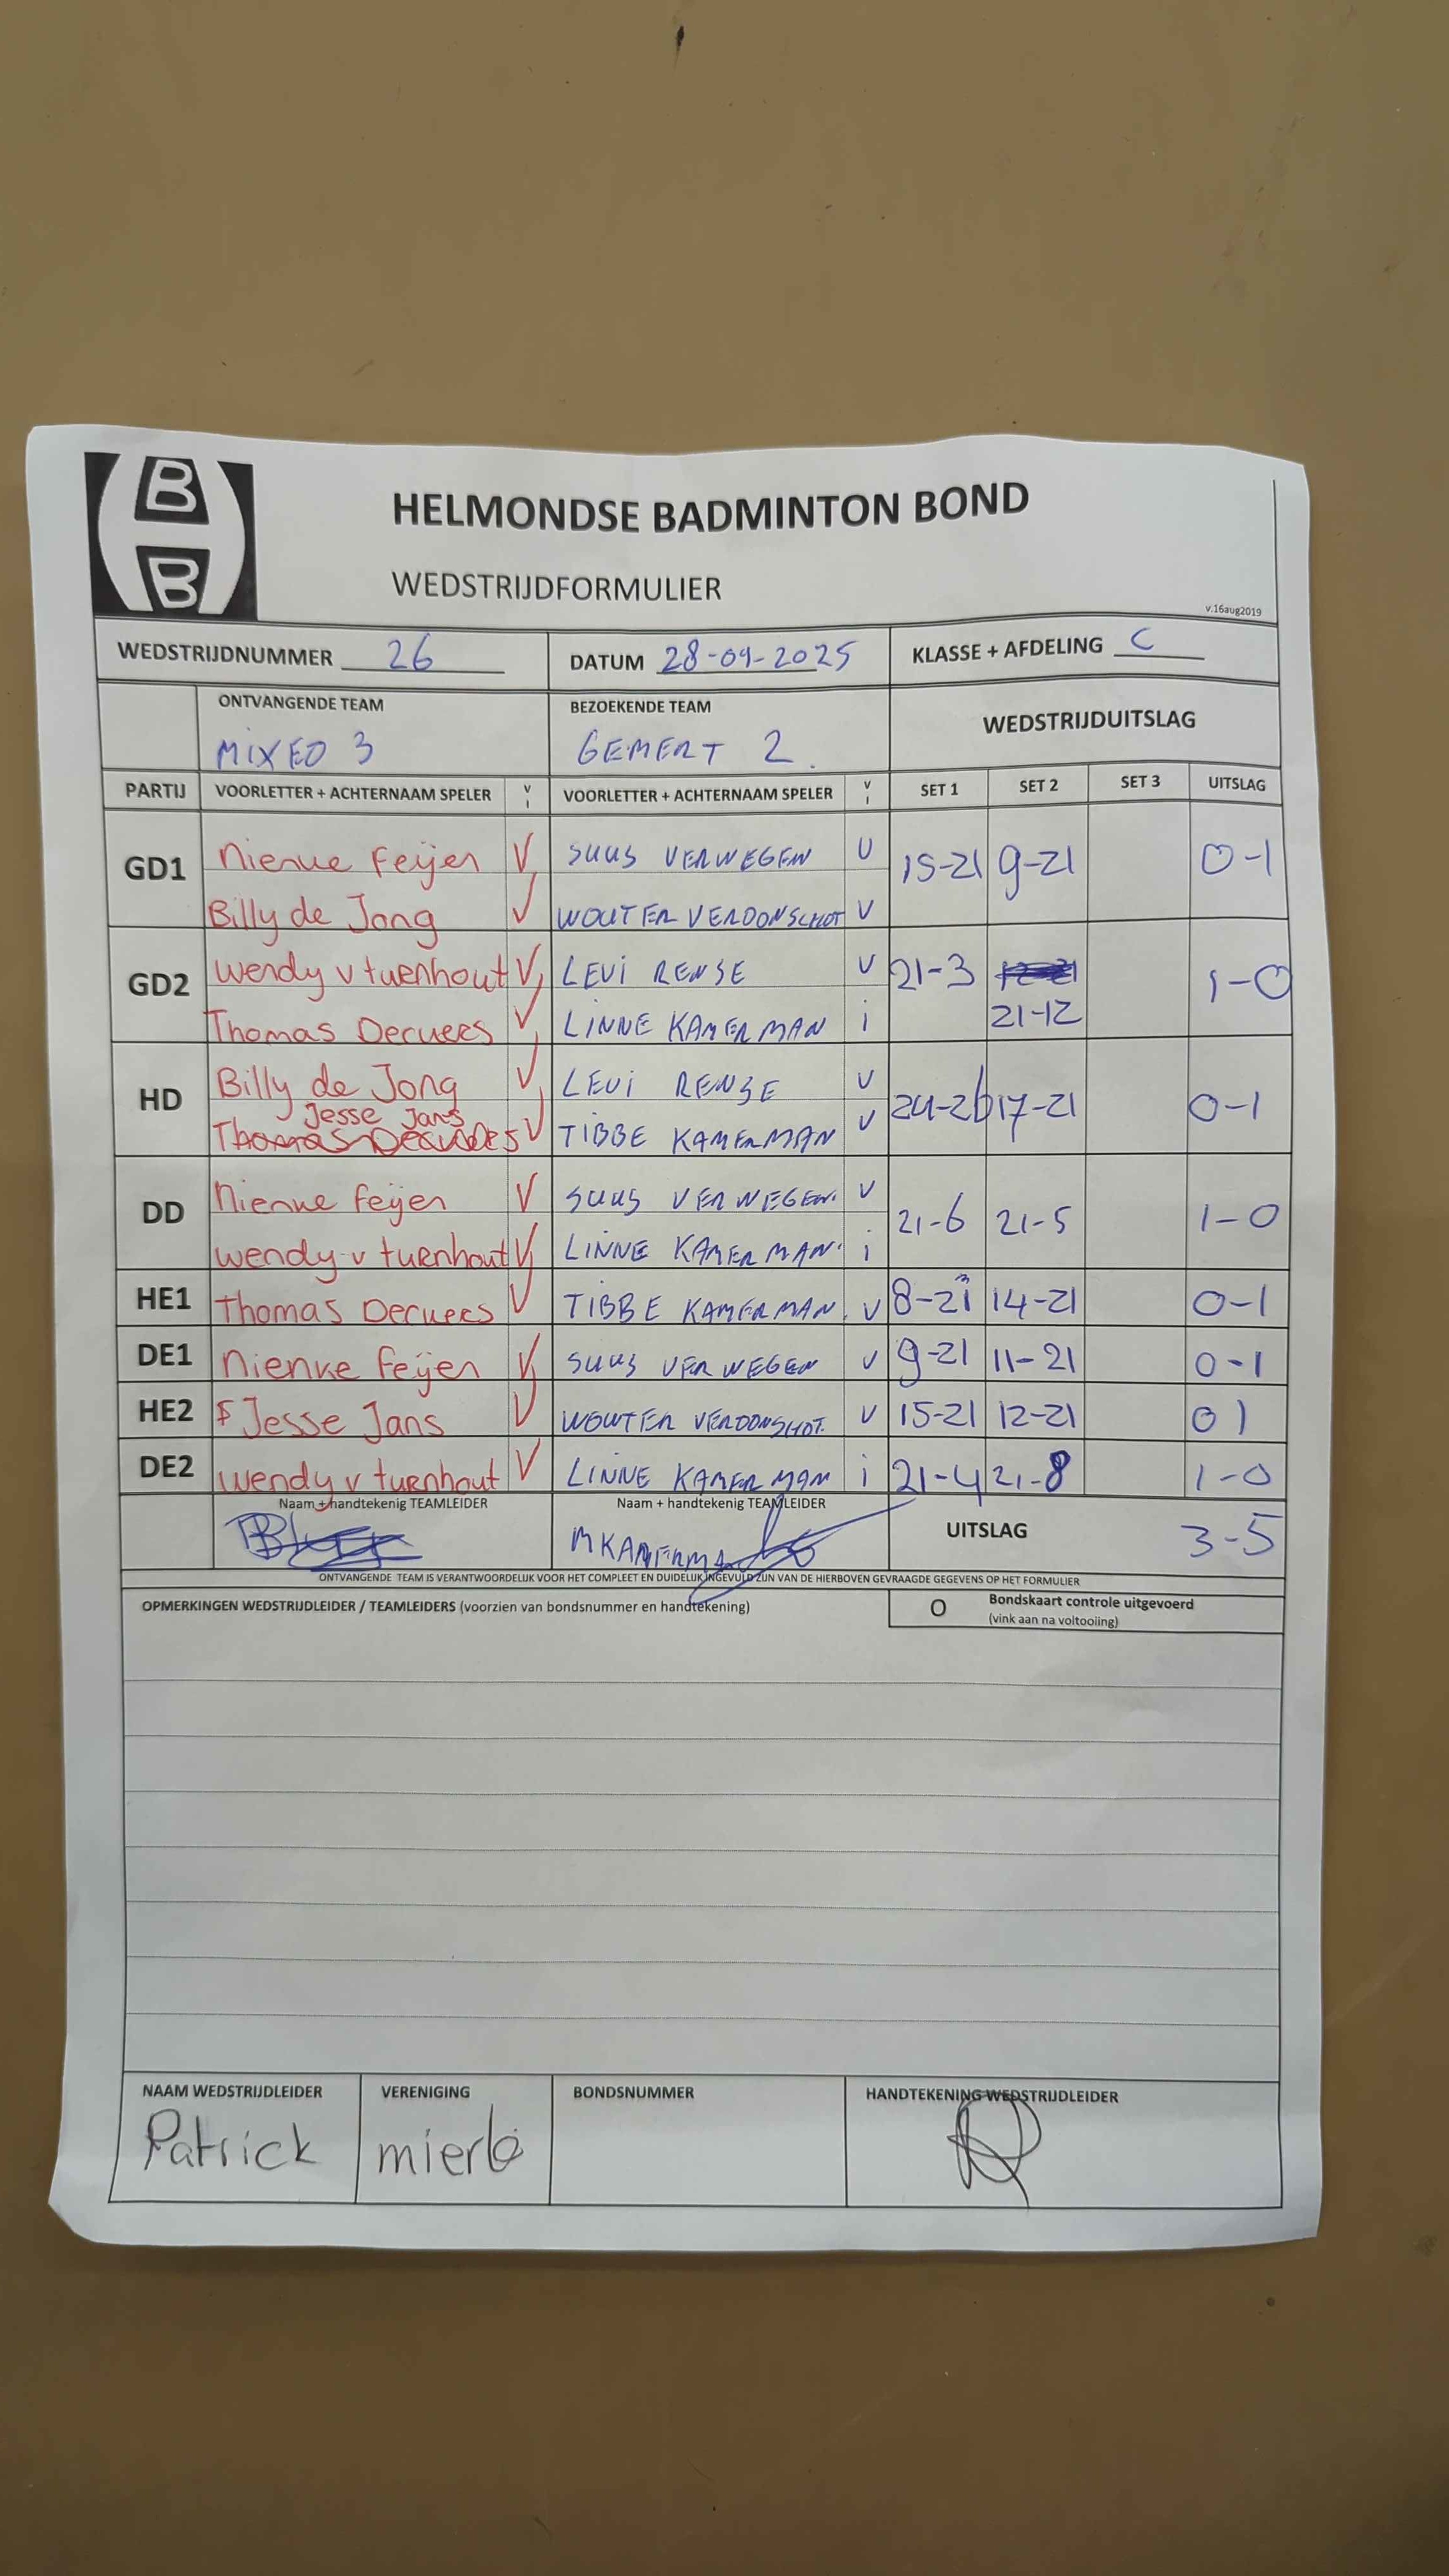 B
B
HELMONDSE BADMINTON BOND
WEDSTRIJDFORMULIER
v.16aug2019
WEDSTRIJDNUMMER 26 DATUM 28-09-2025 KLASSE + AFDELING C
ONTVANGENDE TEAM BEZOEKENDE TEAM WEDSTRIJDUITSLAG
MIXED 3 GEMERT 2.
PARTIJ VOORLETTER + ACHTERNAAM SPELER V I VOORLETTER + ACHTERNAAM SPELER V I SET 1 SET 2 SET 3 UITSLAG
GD1 Nienke Feijen V SUUS VERWEGEN V 15-21 9-21 0-1
Billy de Jong V WOUTER VERDONSCHOT V
GD2 Wendy v turnhout V LEVI RENSE V 21-3 1-0
Thomas V LINNE KAMERMAN i 21-12
HD Billy de Jong V LEVI RENSE V 24-26 17-21 0-1
Jesse Jans V TIBBE KAMERMAN V
DD Nienke Feijen V SUUS VERWEGEN. V 21-6 21-5 1-0
Wendy v turnhout V LINNE KAMERMAN. i
HE1 Thomas V TIBBE KAMERMAN. V 8-21 14-21 0-1
DE1 Nienke Feijen V SUUS VERWEGEN V 9-21 11-21 0-1
HE2 Jesse Jans V WOUTER VERDONSHOT. V 15-21 12-21 0 1
DE2 Wendy v turnhout V LINNE KAMERMAN i 21-4 21-8 1-0
Naam + handtekenig TEAMLEIDER Naam + handtekenig TEAMLEIDER UITSLAG 3-5
ONTVANGENDE TEAM IS VERANTWOORDELIJK VOOR HET COMPLEET EN DUIDELIJK INGEVULD ZIJN VAN DE HIERBOVEN GEVRAAGDE GEGEVENS OP HET FORMULIER
OPMERKINGEN WEDSTRIJDLEIDER / TEAMLEIDERS (voorzien van bondsnummer en handtekening) O Bondskaart controle uitgevoerd
(vink aan na voltooiing)
NAAM WEDSTRIJDLEIDER VERENIGING BONDSNUMMER HANDTEKENING WEDSTRIJDLEIDER
Patrick mierlo